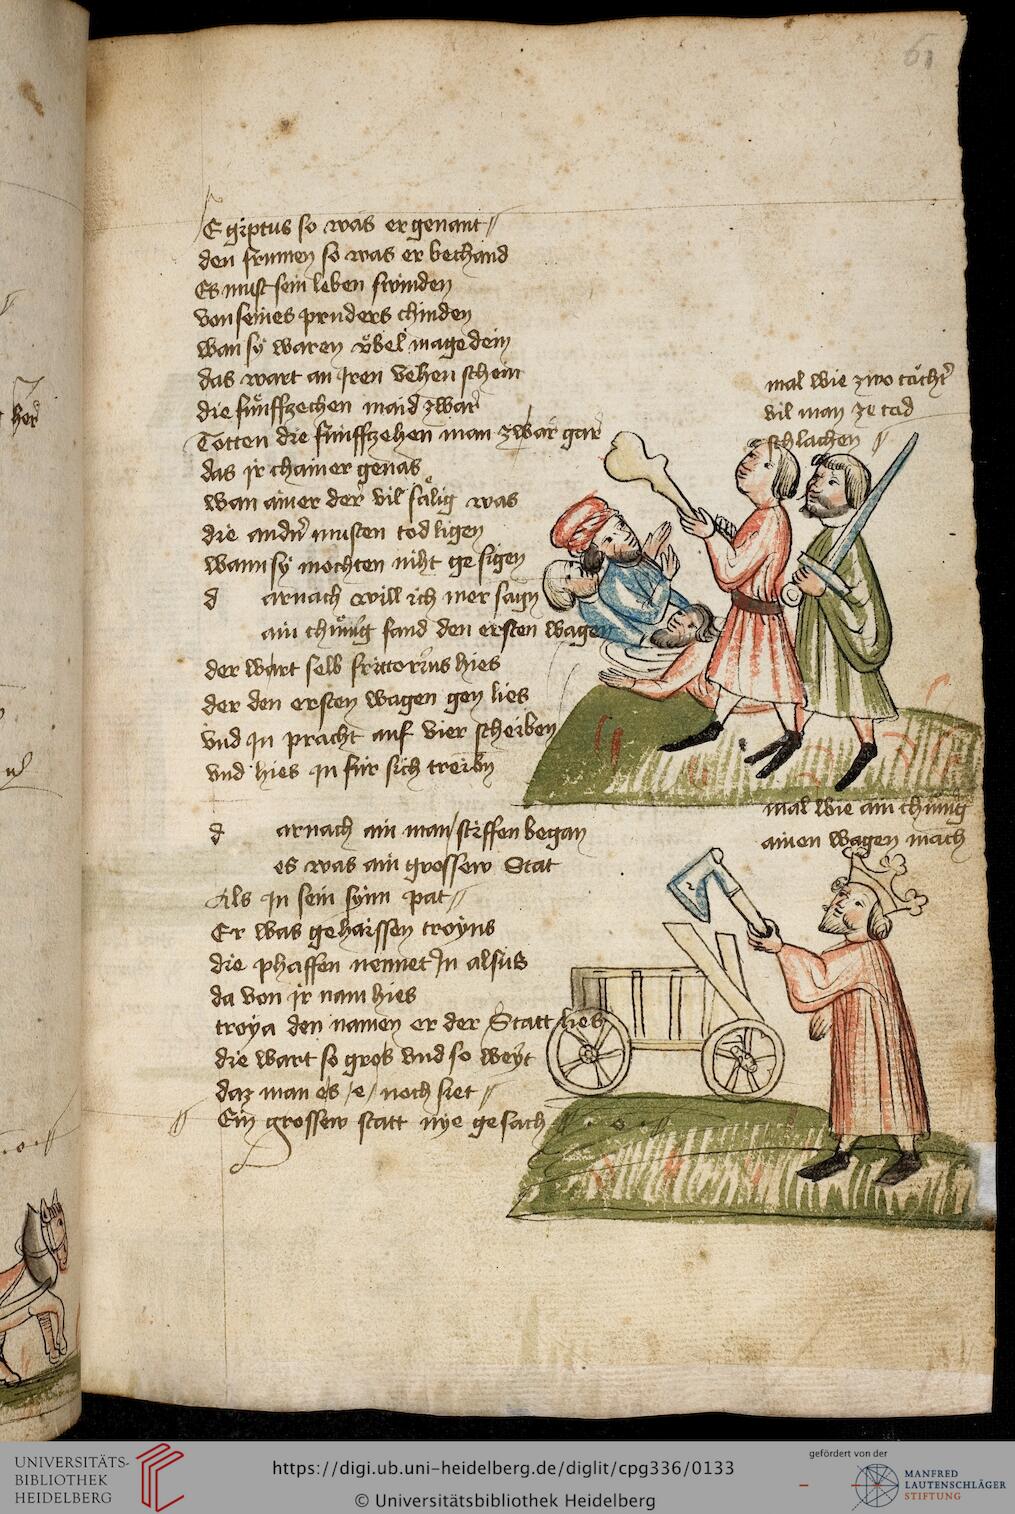 61
Egiptus so was er genant
den frumen so was er bechand
Es must sein leben swinden
von seines pruders chinden
wan sy waren vbel magedein
das wart an Iren vehen schein
die fünffzechen maid zwar
Totten die fünffzehen man zwar gar
das jr chainer genas
wan ainer der vil sälig was
die andern musten tod ligen
wann sy mochten niht gesigen
darnach will ich mer sagn
ain chünig fand den ersten wagen
der wart selb hies
der den ersten wagen gen lies
vnd In pracht auf vier scheiben
vnd hies In für sich treibn
darnach ain man stiffen began
es was ain grossew Stat
Als In sein synn pat
Er was gehaissen troyus
die phaffen nennet In alsus
da von jr nam hies
troya den namen er der Statt lies
die wart so gros vnd so weyt
daz man es e noch siet
Ein grossew statt nye gesach
mal wie zwo töchter
vil man ze tod
schlachen
mal wie ain chünig
ainen wagen mach
her
UNIVERSITÄTS-
BIBLIOTHEK
HEIDELBERG
https://digi.ub.uni-heidelberg.de/diglit/cpg336/0133
© Universitätsbibliothek Heidelberg
gefördert von der
MANFRED
LAUTENSCHLÄGER
STIFTUNG